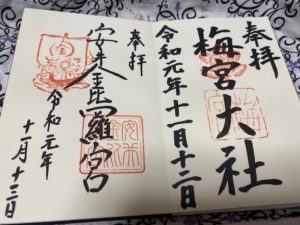 奉拝
梅宮大社
令和元年十一月十二日
奉拝
安井金比羅宮
令和元年
十一月十三日